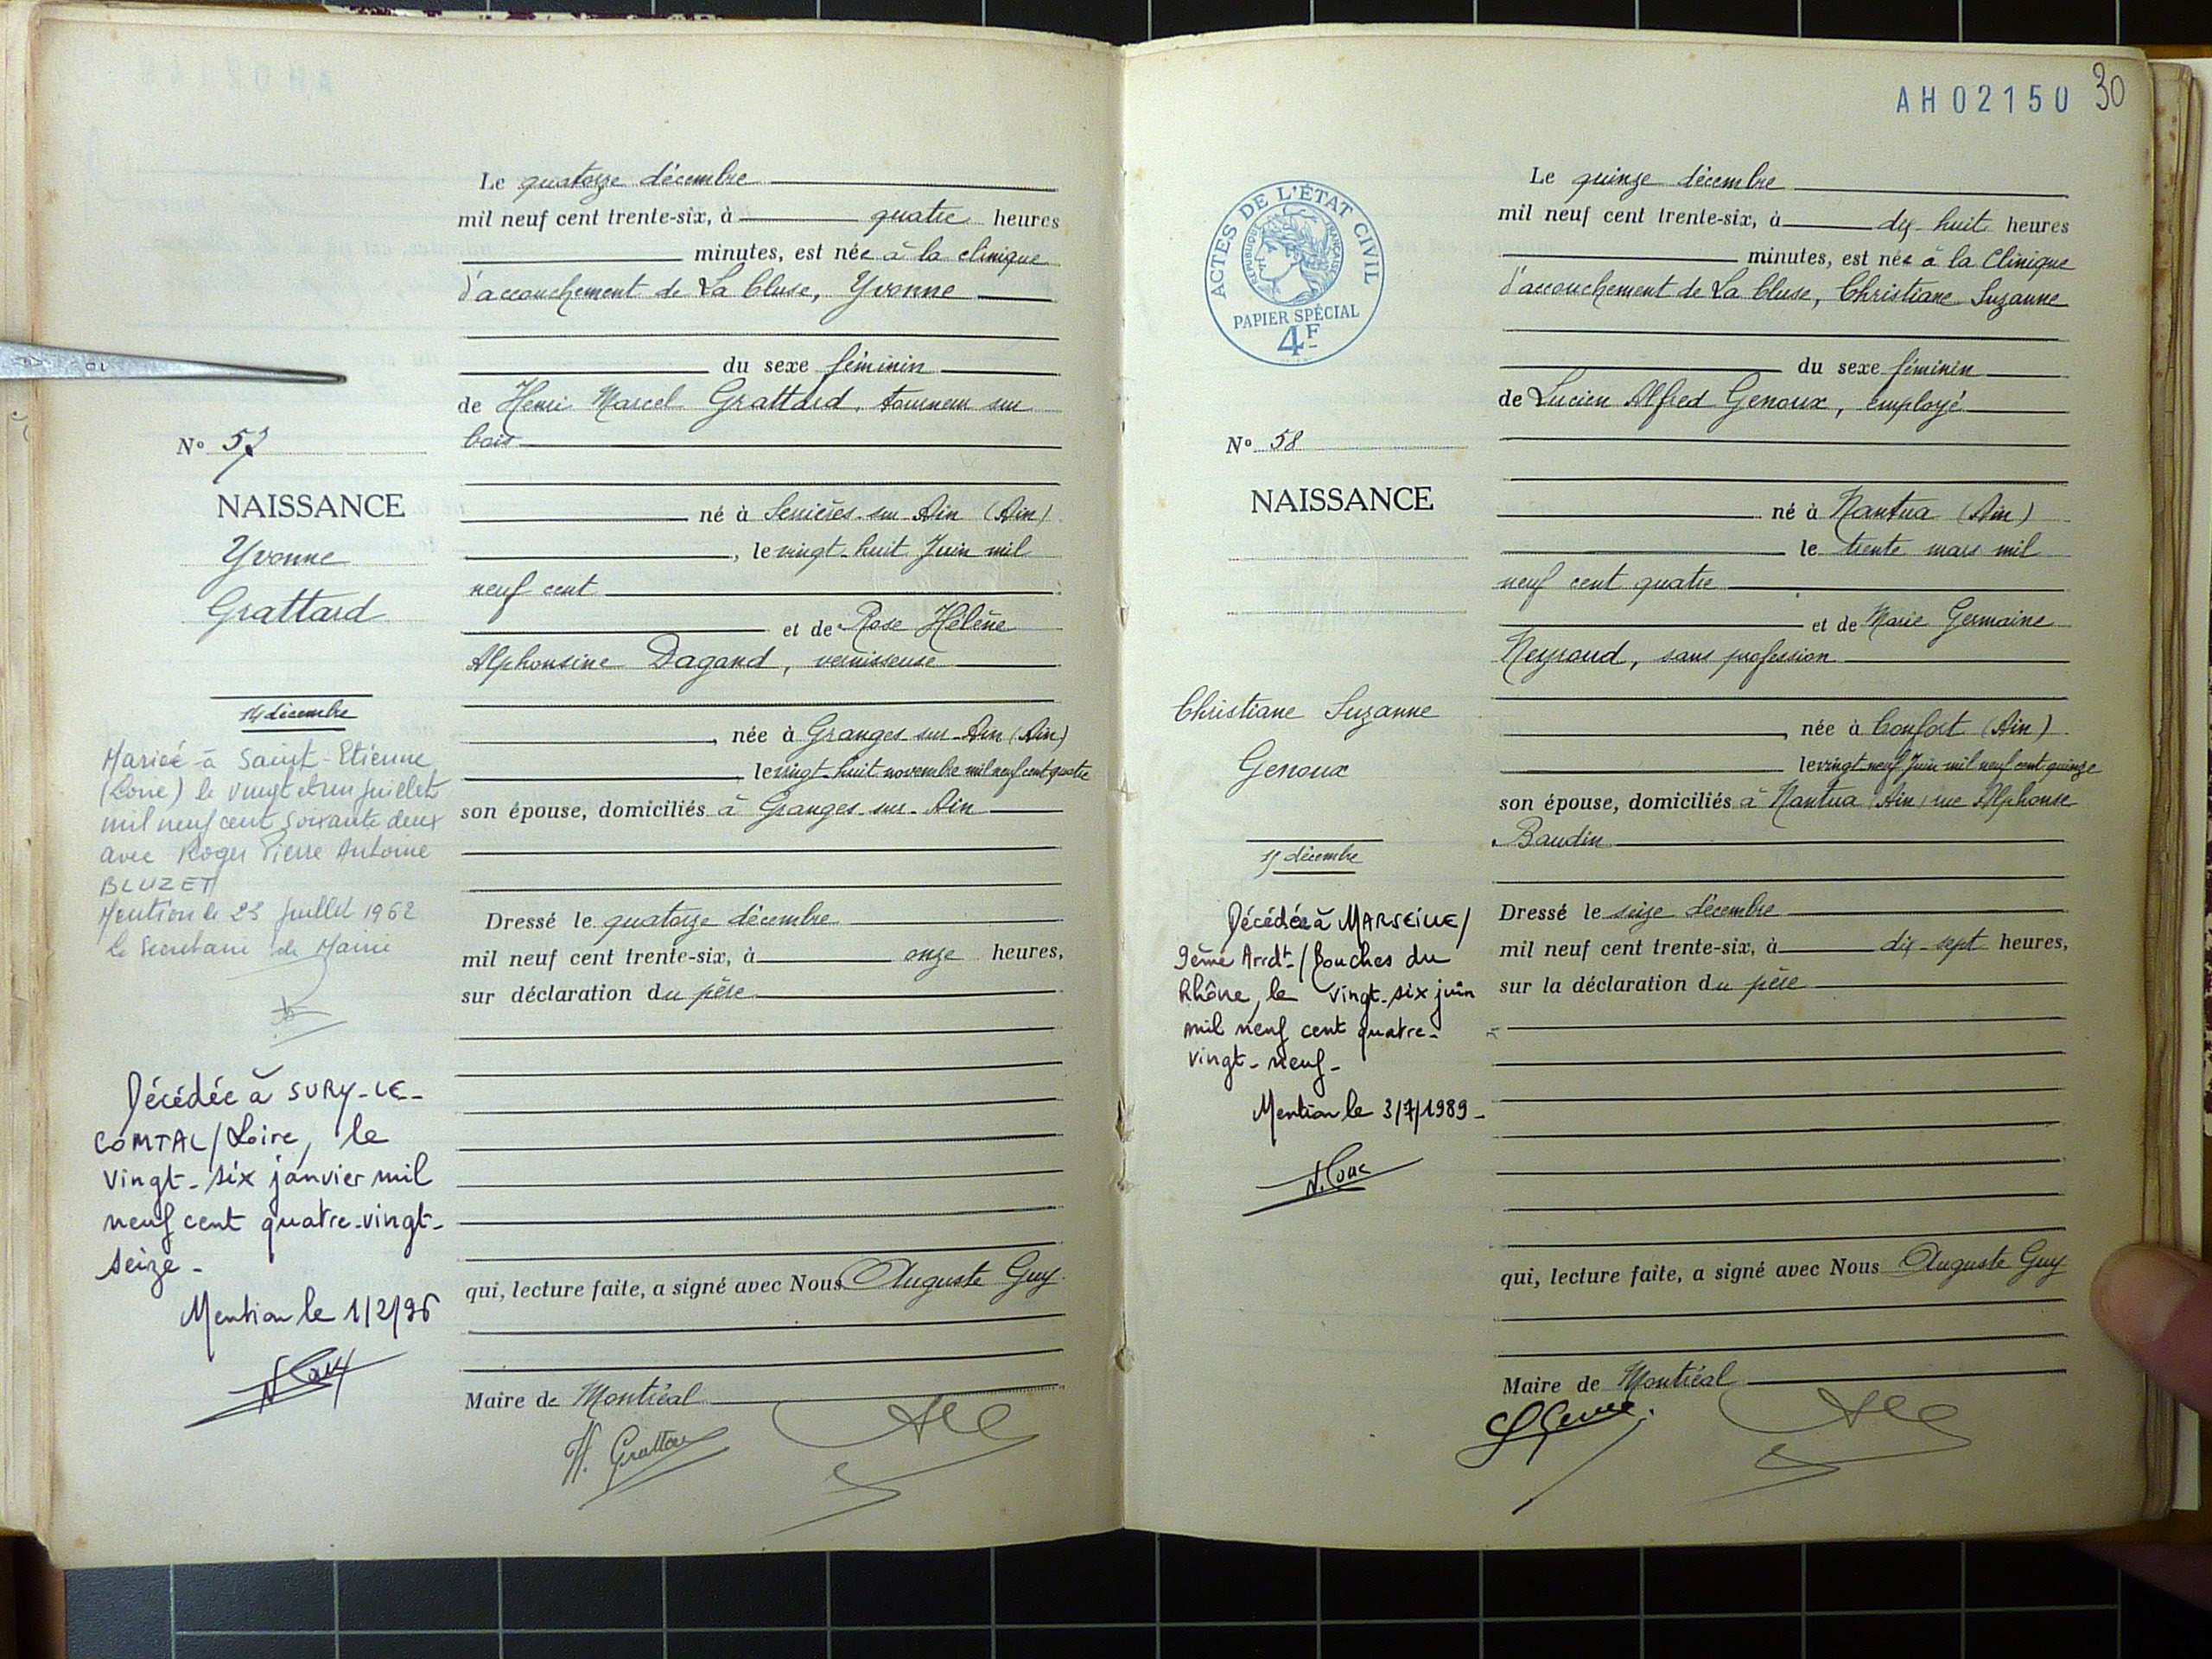 Le quatorze décembre
mil neuf cent trente-six, à quatre heures
minutes, est née à la clinique
d'accouchement de La Cluse, Yvonne
du sexe féminin
de Henri Marcel Grattard, tourneur sur
bois
né à Serrières-sur-Ain (Ain)
, le vingt-huit Juin mil
neuf cent
et de Rose Hélène
Alphonsine Dagand, vernisseuse
, née à Granges-sur-Ain (Ain)
, le vingt-huit novembre mil neuf cent quatre
son épouse, domiciliés à Granges-sur-Ain
Dressé le quatorze décembre
mil neuf cent trente-six, à onze heures,
sur déclaration du père
qui, lecture faite, a signé avec Nous Auguste Guy
Maire de Montréal
H. Grattard
No 57
NAISSANCE
Yvonne
Grattard
14 décembre
Mariée à Saint-Etienne
(Loire) le vingt et un juillet
mil neuf cent soixante deux
avec Roger Pierre Antoine
BLUZET
Mention le 23 juillet 1962
Le Secrétaire de Mairie
Décédée à SURY-LE-
COMTAL/Loire, le
vingt-six janvier mil
neuf cent quatre-vingt-
seize-
Mention le 1/2/96
AH02150 30
ACTES DE L'ÉTAT CIVIL
RÉPUBLIQUE FRANÇAISE
PAPIER SPÉCIAL
4F
Le quinze décembre
mil neuf cent trente-six, à dix-huit heures
minutes, est née à la Clinique
d'accouchement de La Cluse, Christiane Suzanne
du sexe féminin
de Lucien Alfred Genoux, employé
né à Nantua (Ain)
le trente mars mil
neuf cent quatre
et de Marie Germaine
Neyroud, sans profession
, née à Confort (Ain)
le vingt-neuf Juin mil neuf cent quinze
son épouse, domiciliés à Nantua (Ain) rue Alphonse
Baudin
Dressé le seize décembre
mil neuf cent trente-six, à dix-sept heures,
sur la déclaration du père
qui, lecture faite, a signé avec Nous Auguste Guy
Maire de Montréal
No 58
NAISSANCE
Christiane Suzanne
Genoux
15 décembre
Décédée à MARSEILLE/
9ème Arrdt/Bouches du
Rhône, le vingt-six juin
mil neuf cent quatre-
vingt-neuf-
Mention le 3/7/1989-